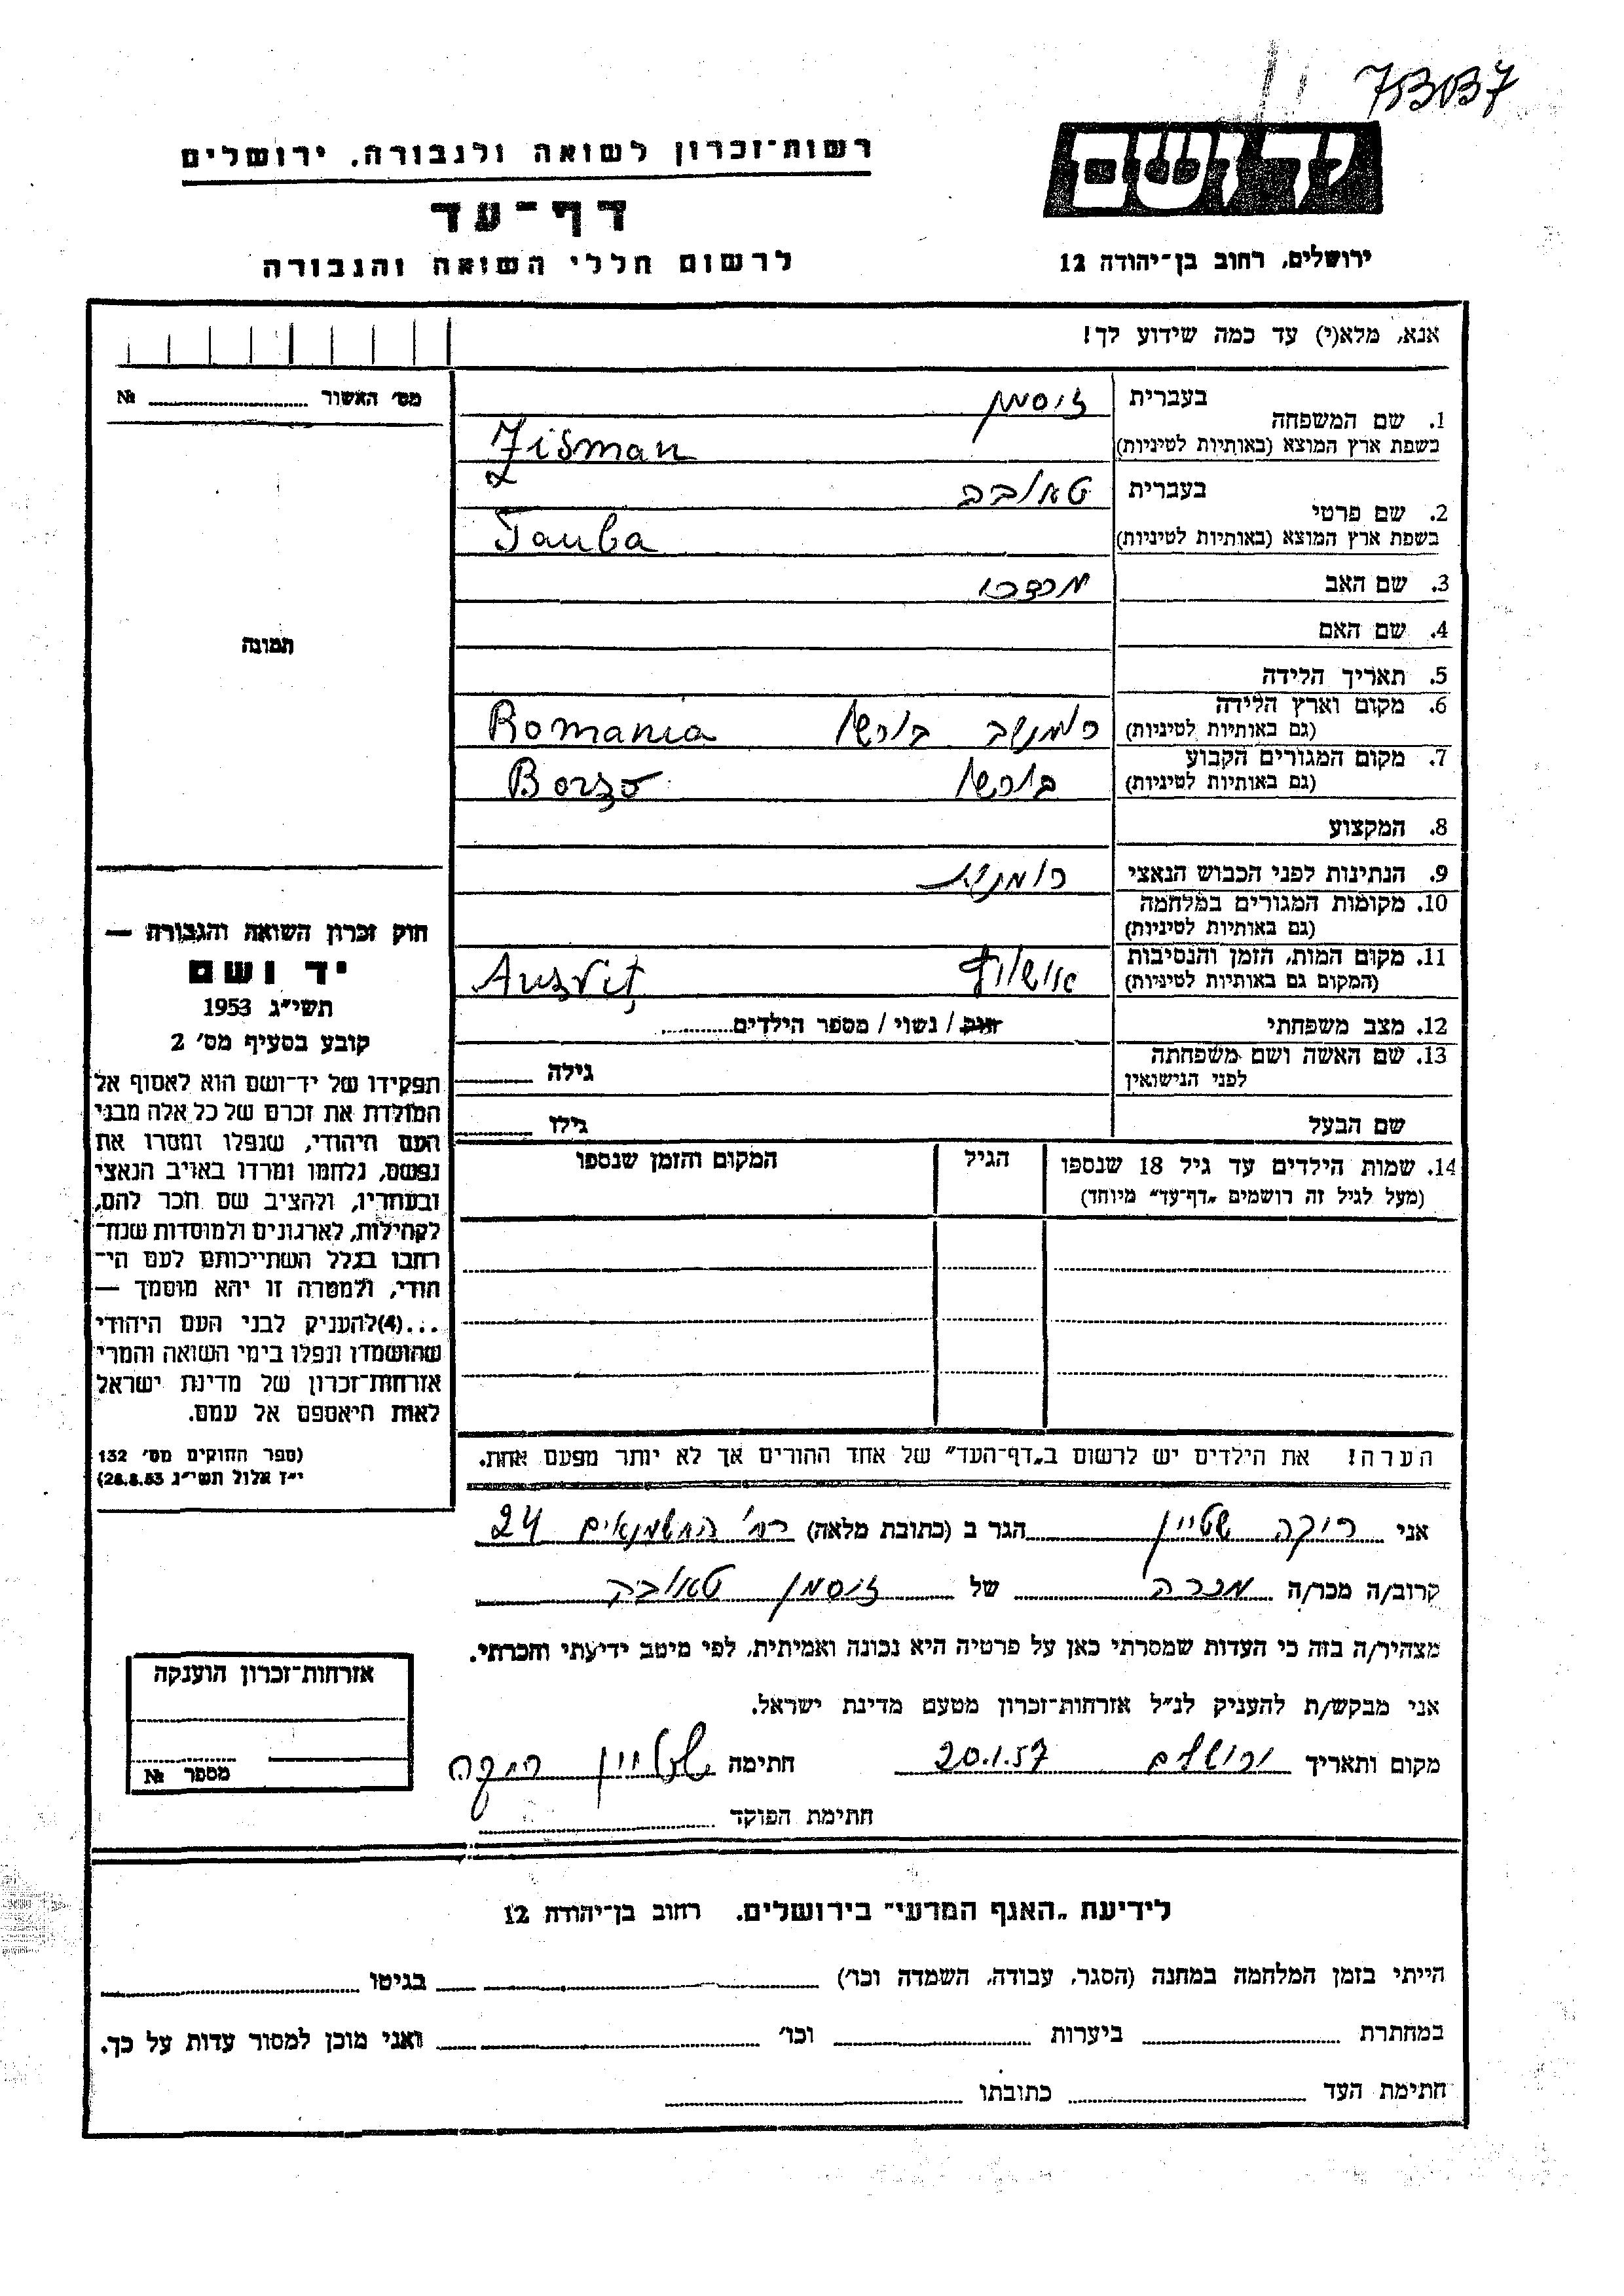 יד ושם
ירושלים, רחוב בן־יהודה 12
רשות־זכרון לשואה ולגבורה. ירושלים
דף־עד
לרשום חללי השואה והגבורה
אנא, מלא(י) עד כמה שידוע לך!
מס׳ האשור № ..........
1. שם המשפחה
בעברית זוסמן
בשפת ארץ המוצא (באותיות לטיניות) Zisman
2. שם פרטי
בעברית טאובה
בשפת ארץ המוצא (באותיות לטיניות) Tauba
3. שם האב מרדכי
4. שם האם
5. תאריך הלידה
6. מקום וארץ הלידה
(גם באותיות לטיניות) רומניה בורשו Romania
7. מקום המגורים הקבוע
(גם באותיות לטיניות) בורשו Borso
8. המקצוע
9. הנתינות לפני הכבוש הנאצי רומנית
10. מקומות המגורים במלחמה
(גם באותיות לטיניות)
11. מקום המות, הזמן והנסיבות
(המקום גם באותיות לטיניות) אושוויץ Ausviț
12. מצב משפחתי רווק / נשוי / מספר הילדים..........
13. שם האשה ושם משפחתה
לפני הנישואין גילה
שם הבעל גילו
14. שמות הילדים עד גיל 18 שנספו
(מעל לגיל זה רושמים „דף־עד״ מיוחד)
הגיל
המקום והזמן שנספו
הערה! את הילדים יש לרשום ב„דף־העד״ של אחד ההורים אך לא יותר מפעם אחת.
תמונה
חוק זכרון השואה והגבורה —
יד ושם
תשי״ג 1953
קובע בסעיף מס׳ 2
תפקידו של יד־ושם הוא לאסוף אל
המולדת את זכרם של כל אלה מבני
העם היהודי, שנפלו ומסרו את
נפשם, נלחמו ומרדו באויב הנאצי
ובעוזריו, ולהציב שם וזכר להם,
לקהילות, לארגונים ולמוסדות שנח־
רבו בגלל השתייכותם לעם הי־
הודי, ולמטרה זו יהא מוסמך —
...(4)להעניק לבני העם היהודי
שהושמדו ונפלו בימי השואה והמרי
אזרחות־זכרון של מדינת ישראל
לאות היאספם אל עמם.
(ספר החוקים מס׳ 132
י״ז אלול תשי״ג 28.8.53)
אני רוקה שטיין הגר ב (כתובת מלאה) רח׳ החשמונאים 24
קרוב/ה מכר/ה מכרה של זוסמן טאובה
מצהיר/ה בזה כי העדות שמסרתי כאן על פרטיה היא נכונה ואמיתית, לפי מיטב ידיעתי והכרתי.
אני מבקש/ת להעניק לנ״ל אזרחות־זכרון מטעם מדינת ישראל.
מקום ותאריך ירושלים 20.1.57 חתימה שטיין רוקה
חתימת הפוקד
אזרחות־זכרון הוענקה
מספר №
לידיעת „האגף המדעי״ בירושלים. רחוב בן־יהודה 12
הייתי בזמן המלחמה במחנה (הסגר, עבודה, השמדה וכו׳) .......... בגיטו ..........
במחתרת .......... ביערות .......... וכו׳ .......... ואני מוכן למסור עדות על כך.
חתימת העד .......... כתובתו ..........